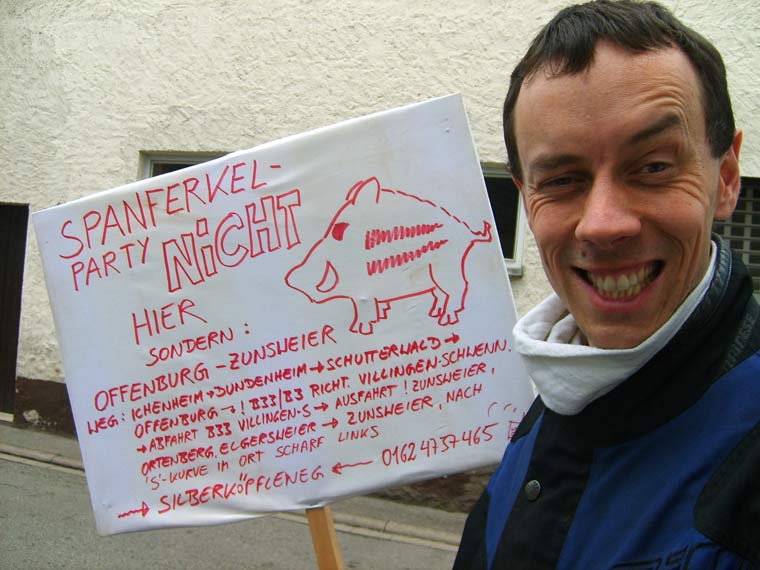 SPANFERKEL-
PARTY NiCHT
HIER
SONDERN:
OFFENBURG - ZUNSWEIER
WEG: ICHENHEIM → DUNDENHEIM → SCHUTTERWALD →
OFFENBURG → ! B33/B3 RICHT. VILLINGEN-SCHWENN.
→ ABFAHRT B33 VILLINGEN-S → AUSFAHRT ! ZUNSWEIER,
ORTENBERG, ELGERSWEIER → ZUNSWEIER, NACH
'S'-KURVE IM ORT SCHARF LINKS
→ SILBERKÖPFLEWEG ← 0162 4737465